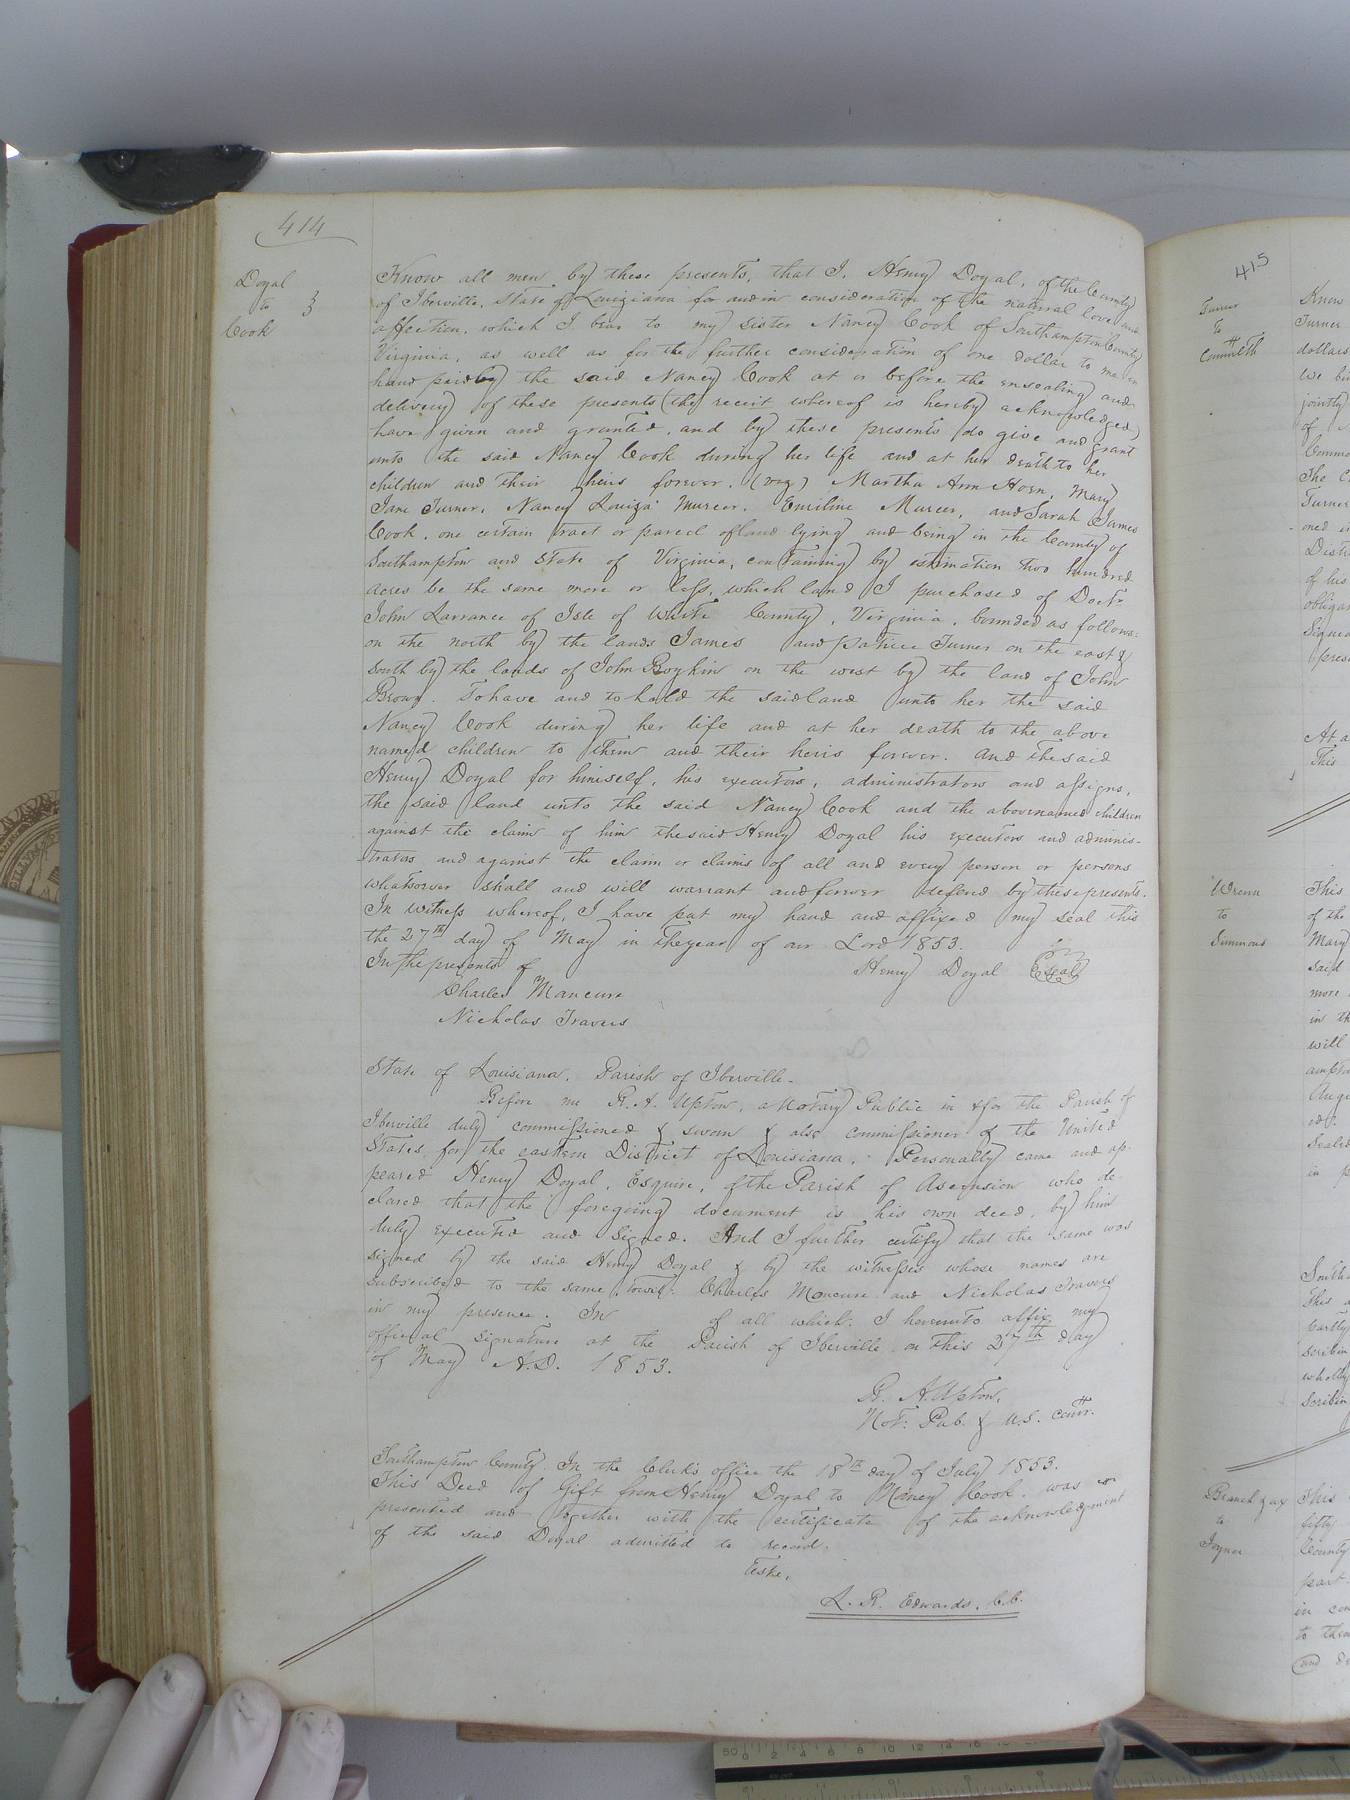 414
Doyal
to
Cook
Know all men by these presents, that I, Henry Doyal, of the County
of Iberville, State of Louiziana for and in consideration of the natural love and
affection, which I bear to my sister Nancy Cook of Southampton County
Virginia, as well as for the further consideration of one dollar to me in
hand paid by the said Nancy Cook at or before the ensealing and
delivery of these presents (the receit whereof is hereby acknowledged)
have given and granted, and by these presents do give and grant
unto the said Nancy Cook during her life and at her death to her
children and their heirs forever. (viz) Martha Ann Horn, Mary
Jane Turner, Nancy Louiza Murcer, Emiline Murcer, and Sarah James
Cook, one certain tract or parcel of land lying and being in the County of
Southampton and State of Virginia, containing by estimation two hundred
acres be the same more or less, which land I purchased of Doctr
John Larrance of Isle of White County, Virginia, bounded as follows:
on the north by the lands James and Turner on the east &
South by the lands of John Boykin on the west by the land of John
To have and to hold the said land unto her the said
Nancy Cook during her life and at her death to the above
named children to them and their heirs forever. And the said
Henry Doyal for himself, his executors, administrators and assigns,
the said land unto the said Nancy Cook and the abovenamed children
against the claim of him the said Henry Doyal his executors and adminis-
trators and against the claim or claims of all and every person or persons
whatsoever shall and will warrant and forever defend by these presents.
In witness whereof, I have put my hand and affixed my seal this
the 27th day of May in the year of our Lord 1853.
In the presents of Henry Doyal Seal
Charles Mancure
Nicholas Travers
State of Louisiana, Parish of Iberville.
Before me R. A. Upton, a Notary Public in & for the Parish of
Iberville duly commissioned & sworn & also commissioner of the United
States, for the eastern District of Louisiana. Personally came and ap-
peared Henry Doyal, Esquire, of the Parish of Ascension who de-
clared that the foregoing document is his own deed, by him
duly executed and signed. And I further certify that the same was
signed by the said Henry Doyal & by the witnesses whose names are
subscribed to the same, towit: Charles Mancure and Nicholas Travers
in my presence. In of all which, I hereunto affix my
official signature at the Parish of Iberville on this 27th day
of May A.D. 1853.
R. A. Upton,
Not: Pub. & U.S. Comr.
Southampton County. In the Clerk's office the 18th day of July 1853.
This Deed of Gift from Henry Doyal to Nancy Cook was
presented and together with the certificate of the acknowledgment
of the said Doyal admitted to record.
Teste,
L. R. Edwards, C.C.
415
Turner
to
Commlth
Know
Turner
dollars
we
jointly
of
Comm
The C
Turner
oned
Dist
of his
obligat
Signed
prese
At a
This
Wrenn
to
Simmons
This
of the
Mary
said
more
in th
will
ampto
Augu
Sealed
in p
Smith
This
Scribin
wholly
Scribin
Branch & ux
to
Joyner
This
fifty
County
part
in con
to them
and